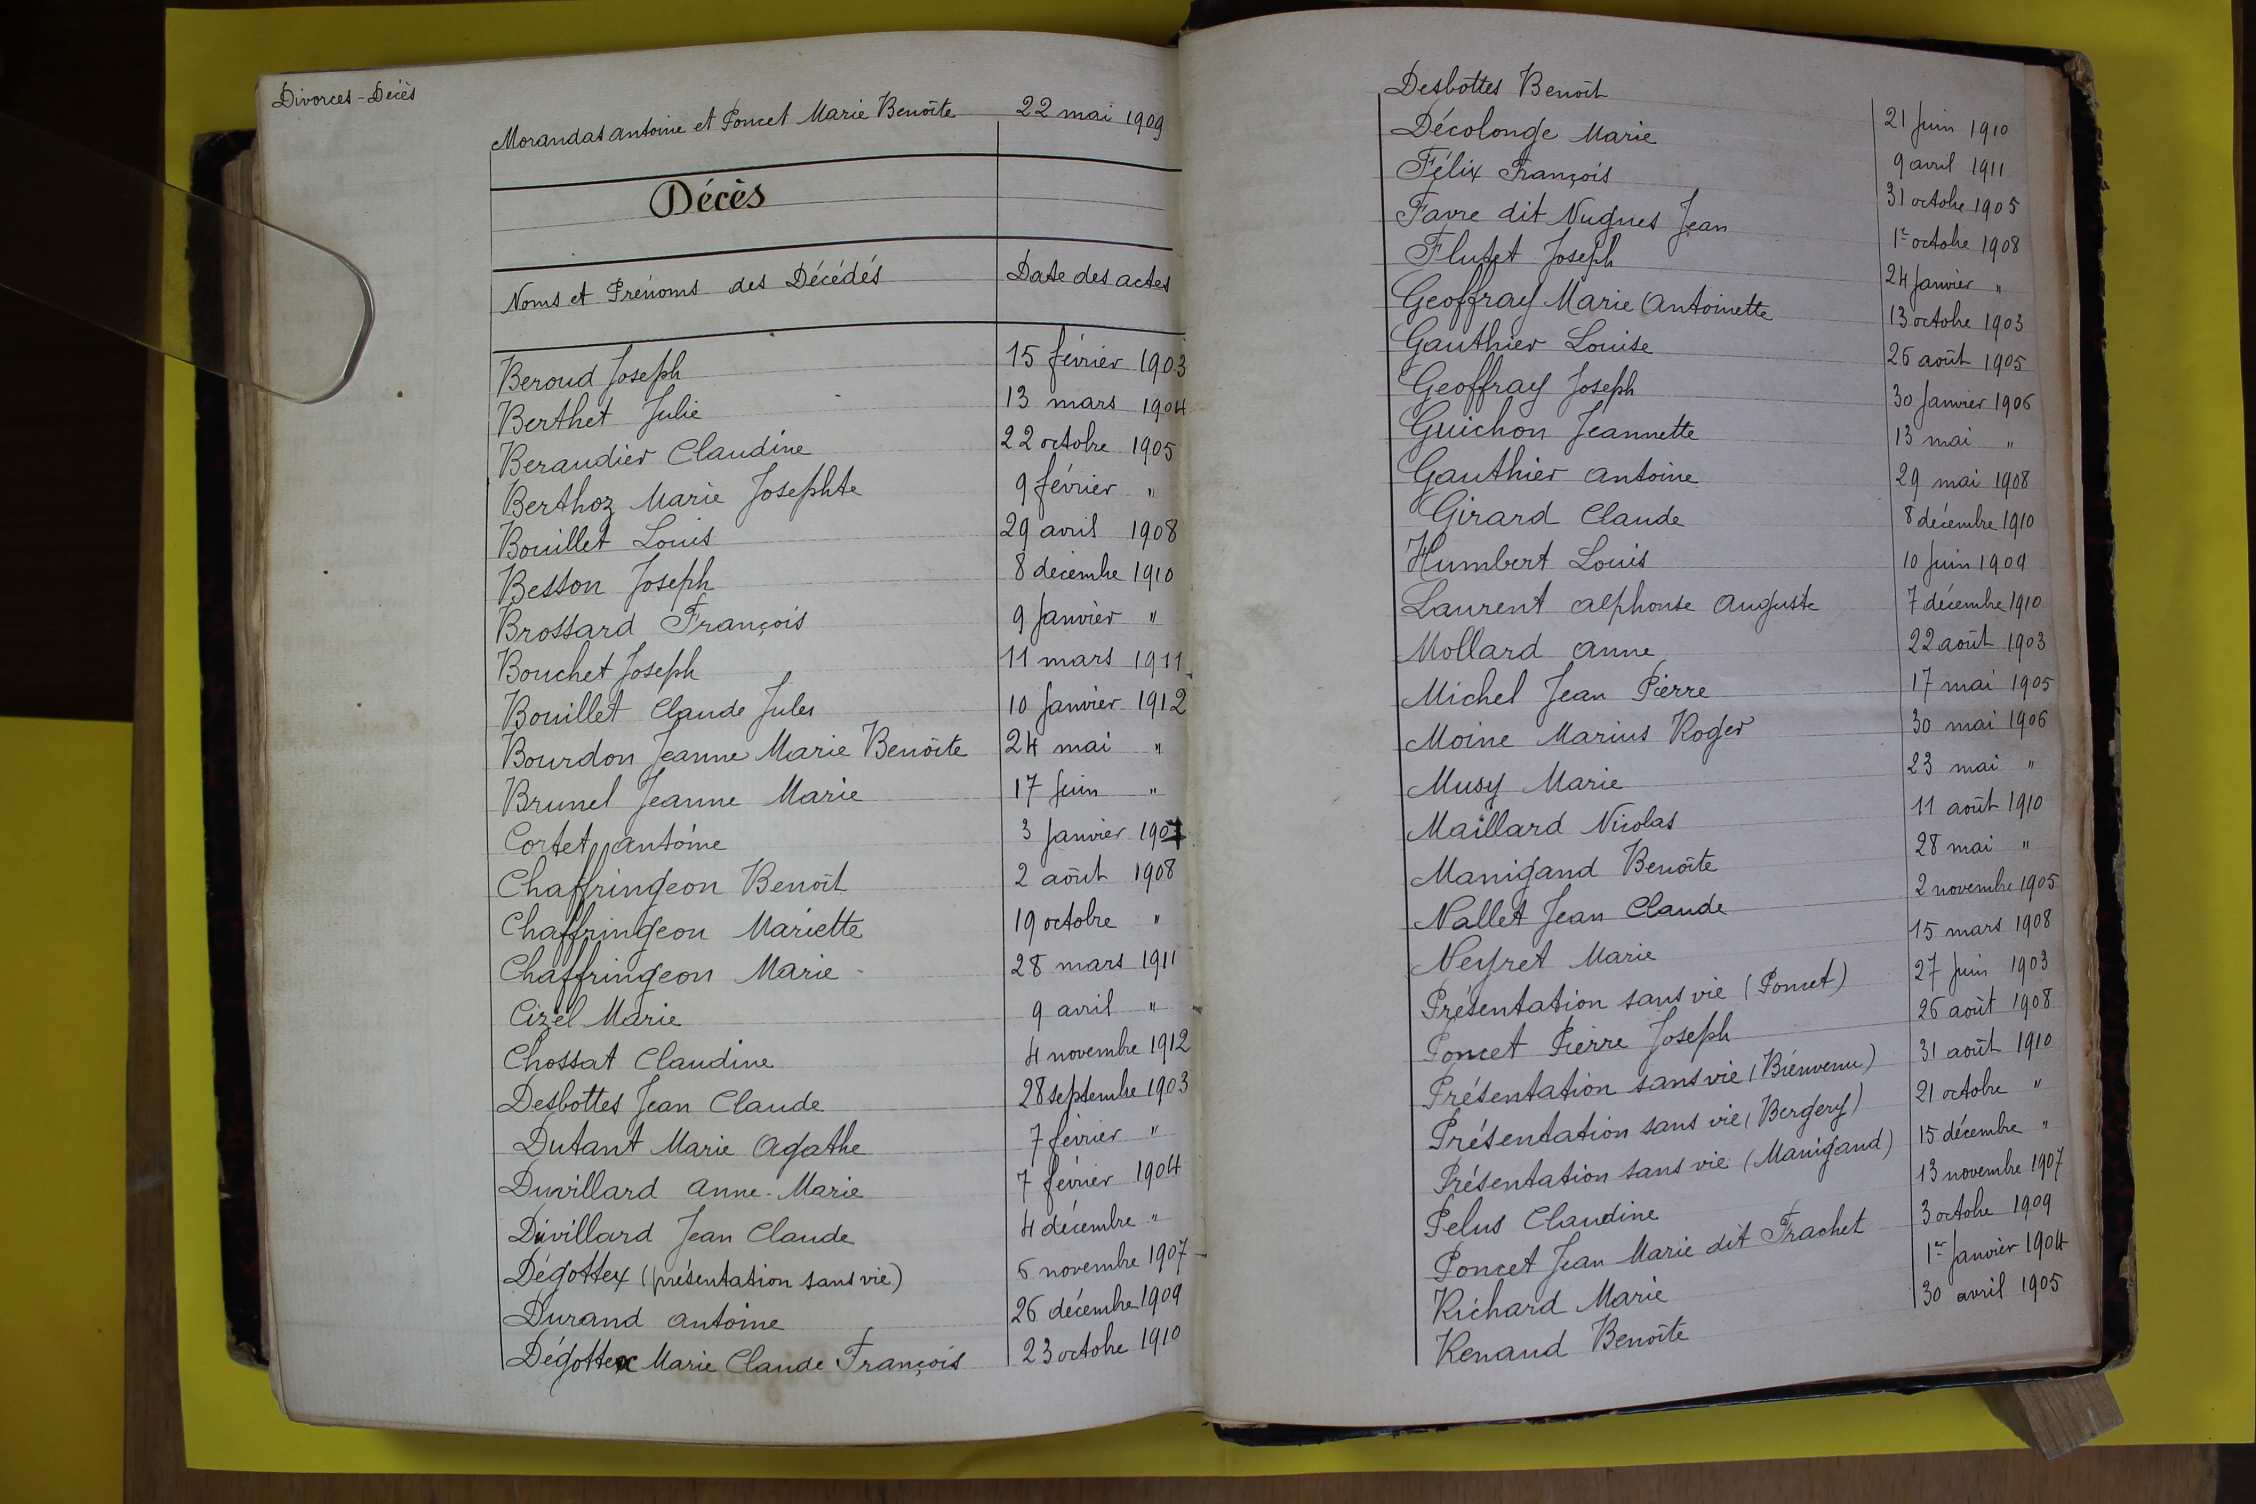 Divorces - Décès
Morandas Antoine et Poncet Marie Benoîte 22 mai 1909
Décès
Noms et Prénoms des Décédés Date des actes
Beroud Joseph 15 février 1903
Berthet Julie 13 mars 1904
Beraudier Claudine 22 octobre 1905
Berthoz Marie Josephte 9 février "
Bouillet Louis 29 avril 1908
Besson Joseph 8 décembre 1910
Brossard François 9 Janvier "
Bouchet Joseph 11 mars 1911
Bouillet Claude Jules 10 Janvier 1912
Bourdon Jeanne Marie Benoîte 24 mai "
Brunel Jeanne Marie 17 Juin "
Cortet Antoine 3 Janvier 1907
Chaffringeon Benoît 2 août 1908
Chaffringeon Mariette 19 octobre "
Chaffringeon Marie 28 mars 1911
Cizel Marie 9 avril "
Chossat Claudine 4 novembre 1912
Desbottes Jean Claude 28 septembre 1903
Dutant Marie Agathe 7 février "
Duvillard Anne-Marie 7 février 1904
Duvillard Jean Claude 4 décembre "
Dégottex (présentation sans vie) 6 novembre 1907
Durand Antoine 26 décembre 1909
Dégottex Marie Claude François 23 octobre 1910
Desbottes Benoît 21 Juin 1910
Décolonge Marie 9 avril 1911
Félix François 31 octobre 1905
Favre dit Nugues Jean 1er octobre 1908
Flutet Joseph 24 Janvier "
Geoffray Marie Antoinette 13 octobre 1903
Gauthier Louise 26 août 1905
Geoffray Joseph 30 Janvier 1906
Guichon Jeannette 13 mai "
Gauthier Antoine 29 mai 1908
Girard Claude 8 décembre 1910
Humbert Louis 10 Juin 1909
Laurent Alphonse Auguste 7 décembre 1910
Mollard Anne 22 août 1903
Michel Jean Pierre 17 mai 1905
Moine Marius Roger 30 mai 1906
Musy Marie 23 mai "
Maillard Nicolas 11 août 1910
Manigand Benoîte 28 mai "
Nallet Jean Claude 2 novembre 1905
Neyret Marie 15 mars 1908
Présentation sans vie (Poncet) 27 Juin 1903
Poncet Pierre Joseph 26 août 1908
Présentation sans vie (Bienvenu) 31 août 1910
Présentation sans vie (Bergery) 21 octobre "
Présentation sans vie (Manigand) 15 décembre "
Pelus Claudine 13 novembre 1907
Poncet Jean Marie dit Frachet 3 octobre 1909
Richard Marie 1er Janvier 1904
Renaud Benoîte 30 avril 1905